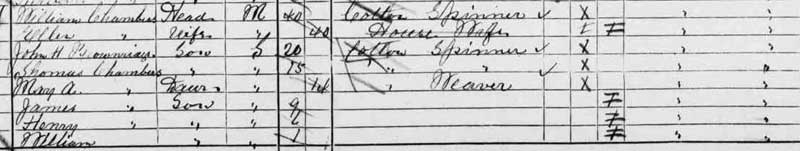 William Chambers Head M 40 Cotton Spinner ✓ X " "
Ellen " Wife " 40 House Wife X F " "
John H Brownrigg Son S 20 Cotton Spinner ✓ X " "
Thomas Chambers " " 15 " " ✓ X " "
Mary A. " Daur " 14 " Weaver X " "
James " Son " 9 F " "
Henry " " " F " "
William " " 1 F " "